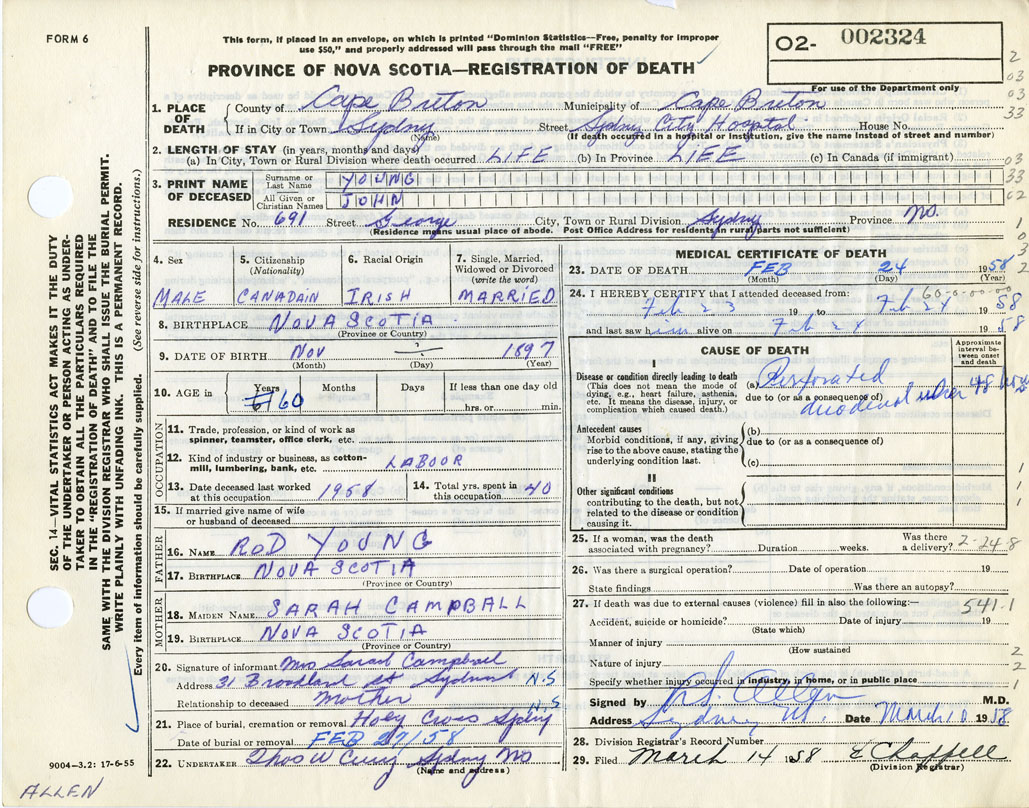 FORM 6
This form, if placed in an envelope, on which is printed "Dominion Statistics—Free, penalty for improper
use $50," and properly addressed will pass through the mail "FREE"
PROVINCE OF NOVA SCOTIA—REGISTRATION OF DEATH
O2- 002324
For use of the Department only
1. PLACE OF DEATH County of Cape Breton Municipality of Cape Breton
If in City or Town Sydney (Name) Street Sydney City Hospital House No.
(If death occurred in a hospital or institution, give the name instead of street and number)
2. LENGTH OF STAY (in years, months and days)
(a) In City, Town or Rural Division where death occurred LIFE (b) In Province LIEE (c) In Canada (if immigrant)
3. PRINT NAME OF DECEASED
Surname or Last Name YOUNG
All Given or Christian Names JOHN
RESIDENCE No. 691 Street George City, Town or Rural Division Sydney Province NS.
(Residence means usual place of abode. Post Office Address for residents in rural parts not sufficient)
4. Sex
MALE
5. Citizenship (Nationality)
CANADAIN
6. Racial Origin
IRISH
7. Single, Married, Widowed or Divorced (write the word)
MARRIED
8. BIRTHPLACE NOVA SCOTIA
(Province or Country)
9. DATE OF BIRTH NOV 1897
(Month) (Day) (Year)
10. AGE in Years Months Days If less than one day old
61 60 hrs. or min.
OCCUPATION
11. Trade, profession, or kind of work as
spinner, teamster, office clerk, etc.
12. Kind of industry or business, as cotton-
mill, lumbering, bank, etc. LABOOR
13. Date deceased last worked at this occupation 1958
14. Total yrs. spent in this occupation 40
15. If married give name of wife
or husband of deceased
FATHER
16. NAME ROD YOUNG
17. BIRTHPLACE NOVA SCOTIA
(Province or Country)
MOTHER
18. MAIDEN NAME SARAH CAMPBALL
19. BIRTHPLACE NOVA SCOTIA
(Province or Country)
20. Signature of informant Mrs Sarah Campbell
Address 31 Brookland St Sydney N.S
Relationship to deceased Mother N.S
21. Place of burial, cremation or removal Holy Cross Sydney
Date of burial or removal FEB 27/58
22. UNDERTAKER Thos W Curry Sydney NS
(Name and address)
MEDICAL CERTIFICATE OF DEATH
23. DATE OF DEATH FEB 24 1958
(Month) (Day) (Year)
60-0-00-00
24. I HEREBY CERTIFY that I attended deceased from:
Feb 23 19 to Feb 24 1958
and last saw him alive on Feb 24 1958
CAUSE OF DEATH
Approximate interval between onset and death
I
Disease or condition directly leading to death
(This does not mean the mode of
dying, e.g., heart failure, asthenia,
etc. It means the disease, injury, or
complication which caused death.)
(a) Perforated
due to (or as a consequence of)
duodenal ulcer 48 hrs
Antecedent causes
Morbid conditions, if any, giving
rise to the above cause, stating the
underlying condition last.
(b)
due to (or as a consequence of)
(c)
II
Other significant conditions
contributing to the death, but not
related to the disease or condition
causing it.
25. If a woman, was the death
associated with pregnancy? Duration weeks. Was there a delivery? 2-24-8
26. Was there a surgical operation? Date of operation 19
State findings Was there an autopsy?
27. If death was due to external causes (violence) fill in also the following:— 541.1
Accident, suicide or homicide? (State which) Date of injury 19
Manner of injury
(How sustained
Nature of injury
Specify whether injury occurred in industry, in home, or in public place
Signed by Allen M.D.
Address Sydney Date March 10 1958
28. Division Registrar's Record Number
29. Filed March 14 1958 E Chappell
(Division Registrar)
SEC. 14—VITAL STATISTICS ACT MAKES IT THE DUTY
OF THE UNDERTAKER OR PERSON ACTING AS UNDER-
TAKER TO OBTAIN ALL THE PARTICULARS REQUIRED
IN THE "REGISTRATION OF DEATH" AND TO FILE THE
SAME WITH THE DIVISION REGISTRAR WHO SHALL ISSUE THE BURIAL PERMIT.
WRITE PLAINLY WITH UNFADING INK. THIS IS A PERMANENT RECORD.
Every item of information should be carefully supplied. (See reverse side for instructions.)
9004—3.2: 17-6-55
ALLEN
2
03
03
33
03
33
02
1
2
1
1
1
2
2
1